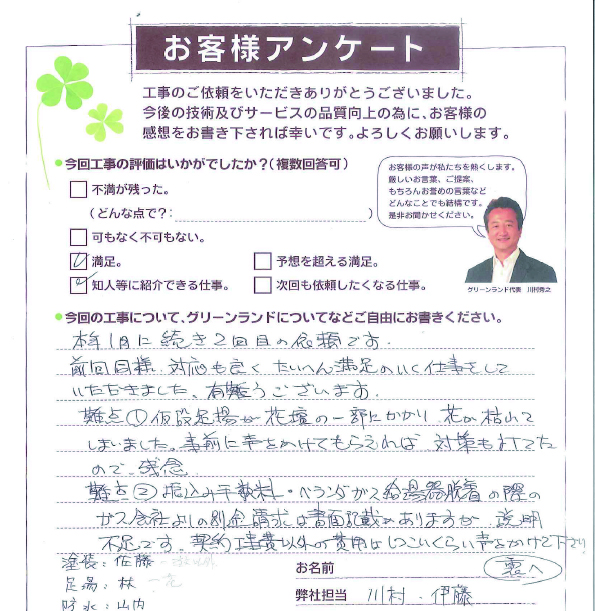 お客様アンケート
工事のご依頼をいただきありがとうございました。
今後の技術及びサービスの品質向上の為に、お客様の
感想をお書き下されば幸いです。よろしくお願いします。
今回工事の評価はいかがでしたか?(複数回答可)
不満が残った。
(どんな点で?: )
可もなく不可もない。
満足。
予想を超える満足。
知人等に紹介できる仕事。
次回も依頼したくなる仕事。
お客様の声が私たちを熱くします。
厳しいお言葉、ご提案、
もちろんお誉めの言葉など
どんなことでも結構です。
是非お聞かせください。
グリーンランド代表 川村秀之
今回の工事について、グリーンランドについてなどご自由にお書きください。
本年1月に続き2回目の依頼です。
前回同様、対応も良く、たいへん満足のいく仕事をして
いただきました、有難うございます。
難点①仮設足場が花壇の一部にかかり、花が枯れて
しまいました。事前に声をかけてもらえれば、対策も打てた
ので、残念
難点②振込み手数料・ベランダガス給湯器脱着の際の
ガス会社よりの別途請求は書面記載がありますが、説明
不足です。契約工事費以外の費用はしつこいくらい声をかけて下さい
裏へ
塗装:佐藤
足場:林
防水:山内
お名前
弊社担当 川村・伊藤